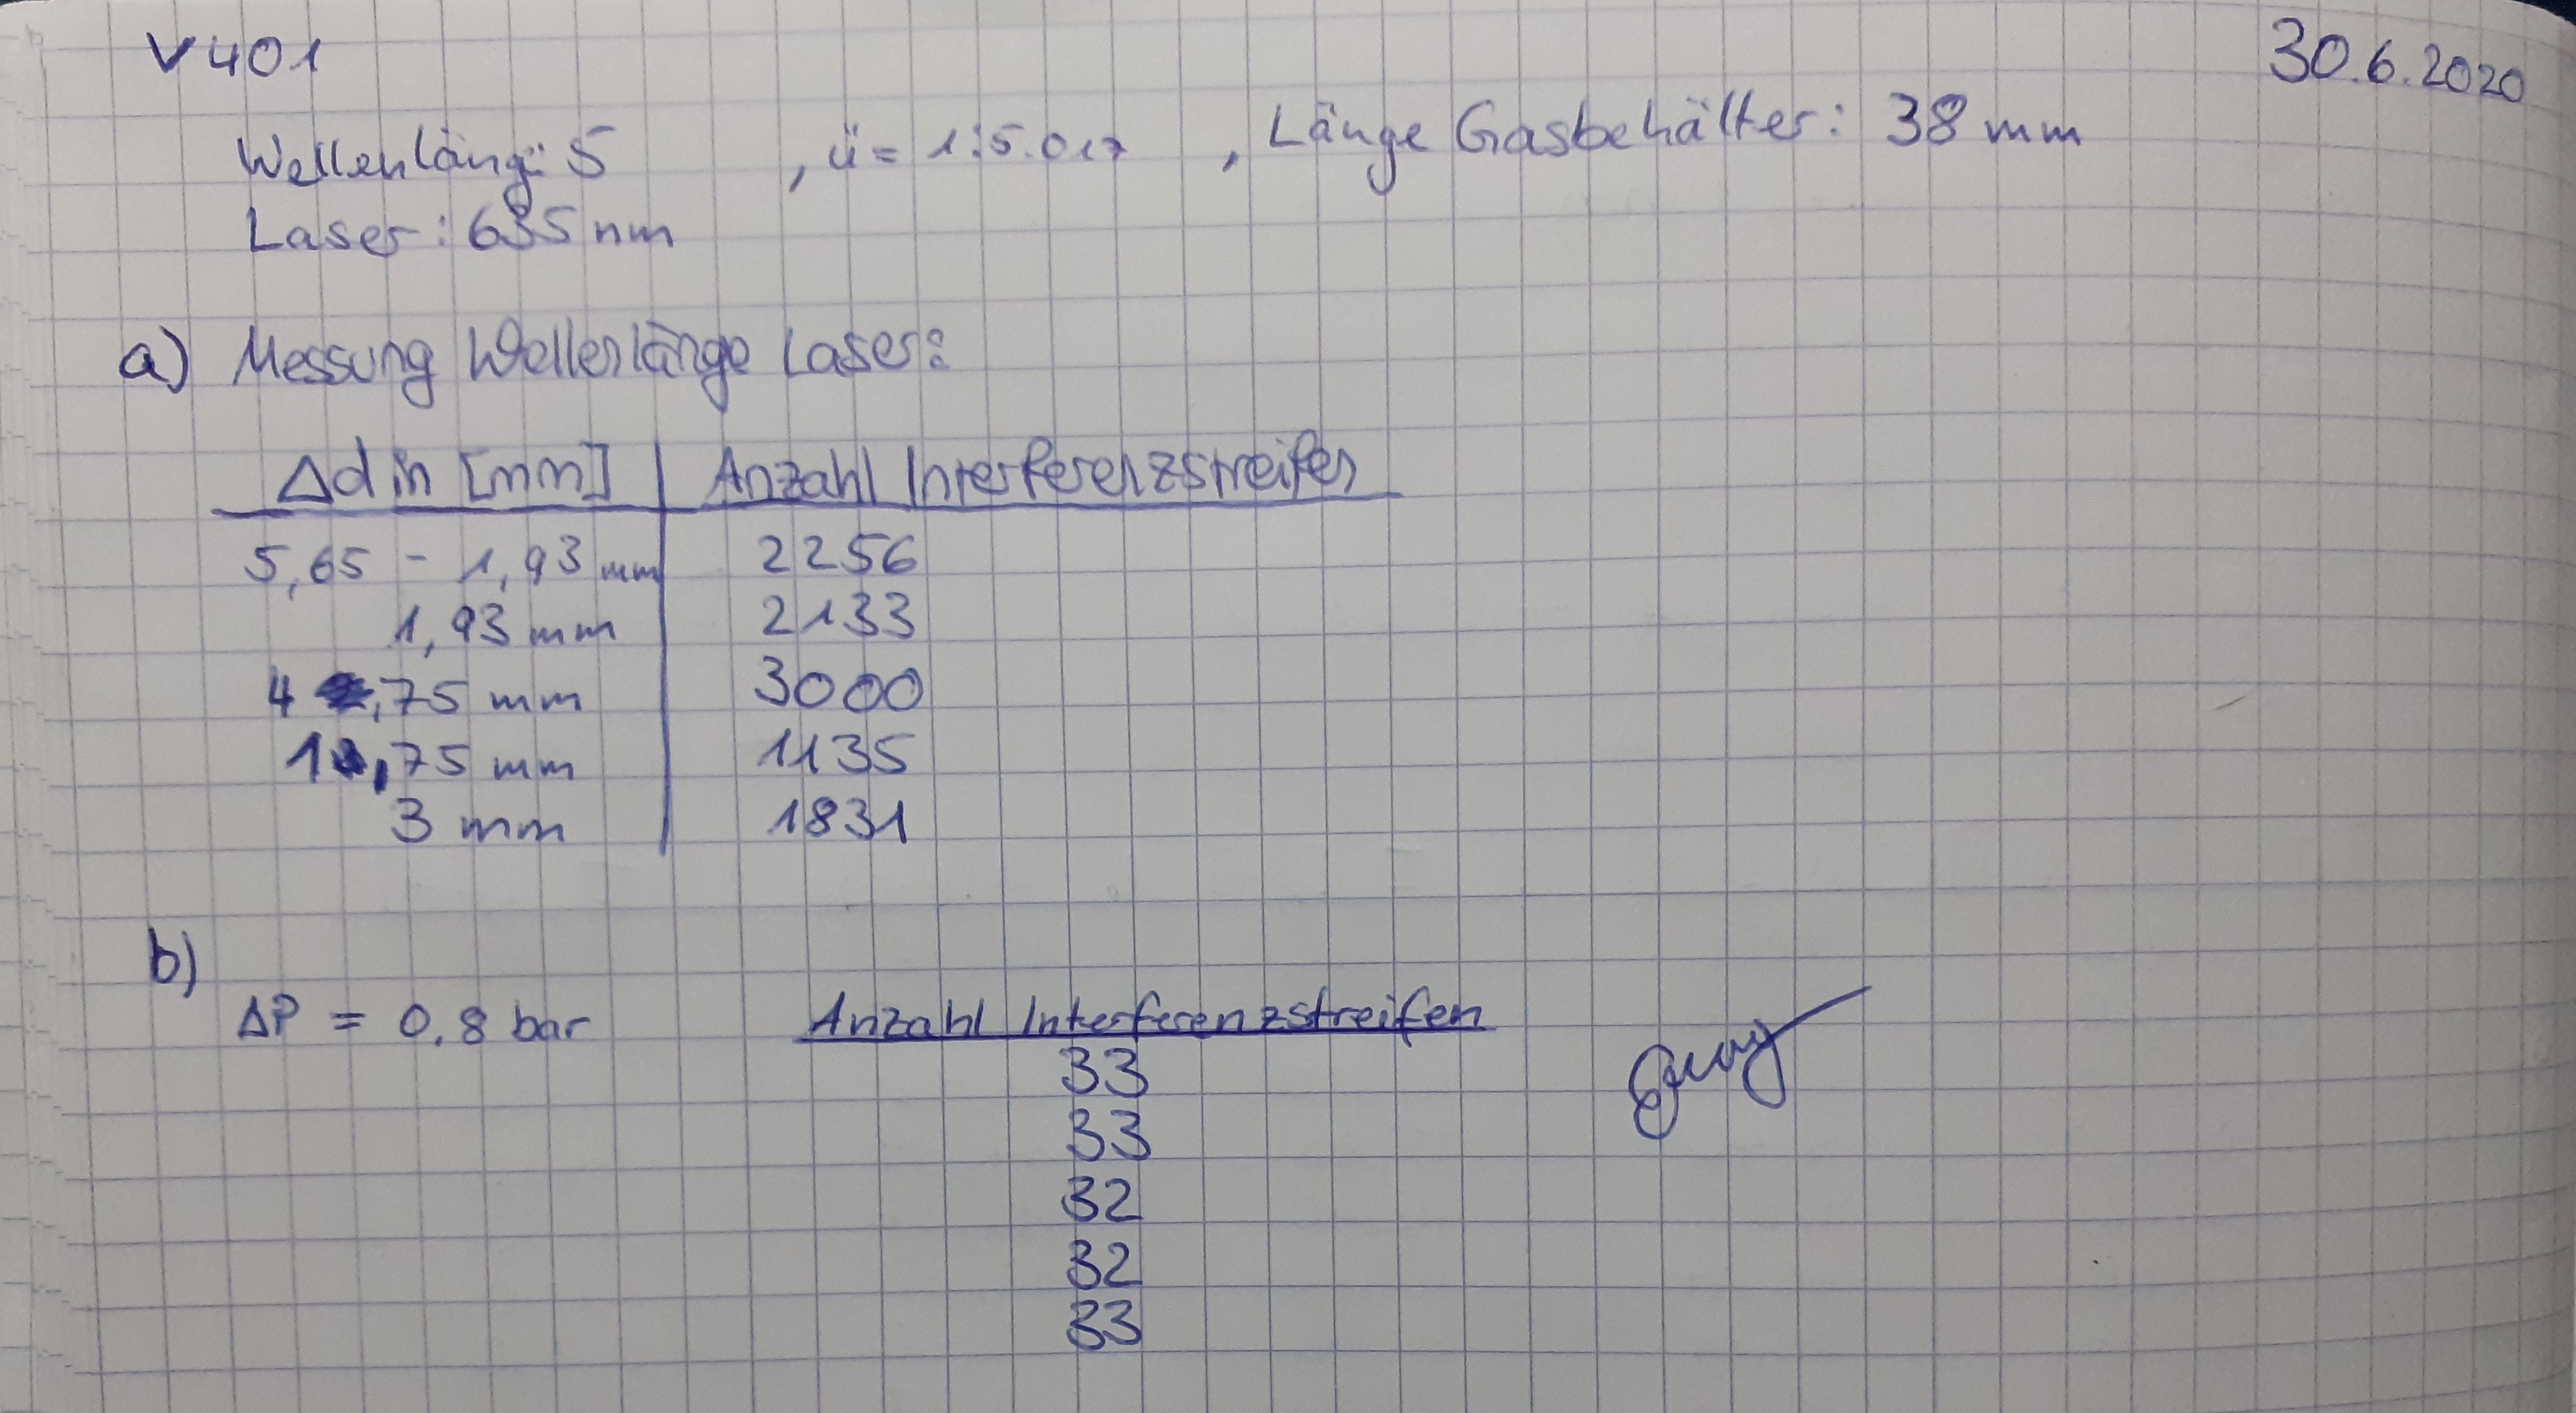 V401 30.6.2020
Wellenläng: 5 , ü = 1:5.017 , Länge Gasbehälter: 38 mm
Laser: 635 nm
a) Messung Wellenlänge Laser:
Δd in [mm] Anzahl Interferenzstreifen
5,65 - 1,93 mm 2256
1,93 mm 2133
4,75 mm 3000
1,75 mm 1135
3 mm 1831
b)
ΔP = 0,8 bar Anzahl Interferenzstreifen
33
33
32
32
33